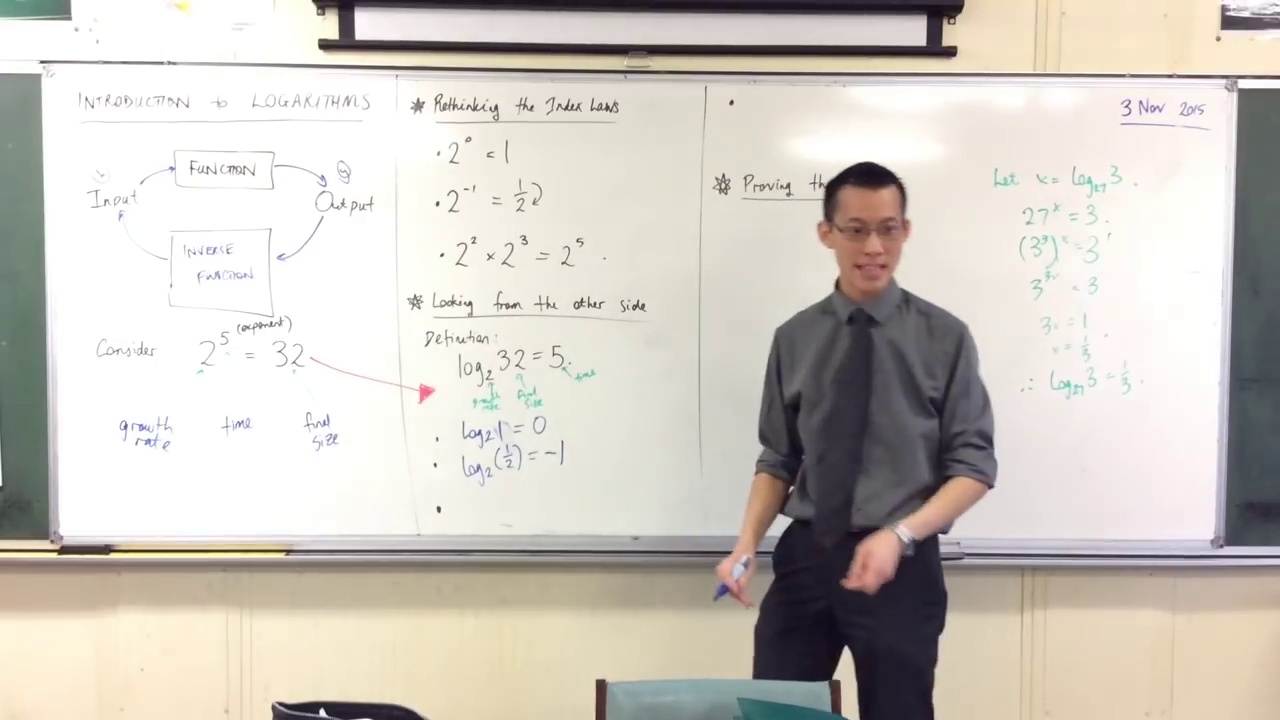 INTRODUCTION to LOGARITHMS
FUNCTION
Input
Output
INVERSE
FUNCTION
Consider 2⁵ = 32
(exponent)
growth rate
time
final size
* Rethinking the Index Laws
• 2⁰ = 1
• 2⁻¹ = 1/2
• 2² × 2³ = 2⁵.
* Looking from the other side
Definition:
log₂ 32 = 5.
growth rate
final size
time
• log₂ 1 = 0
• log₂ (1/2) = -1
•
•
* Proving th
3 Nov 2015
Let x = log₂₇ 3.
27ˣ = 3.
(3³)ˣ = 3¹
3³ˣ = 3
3x = 1
x = 1/3.
∴ log₂₇ 3 = 1/3.